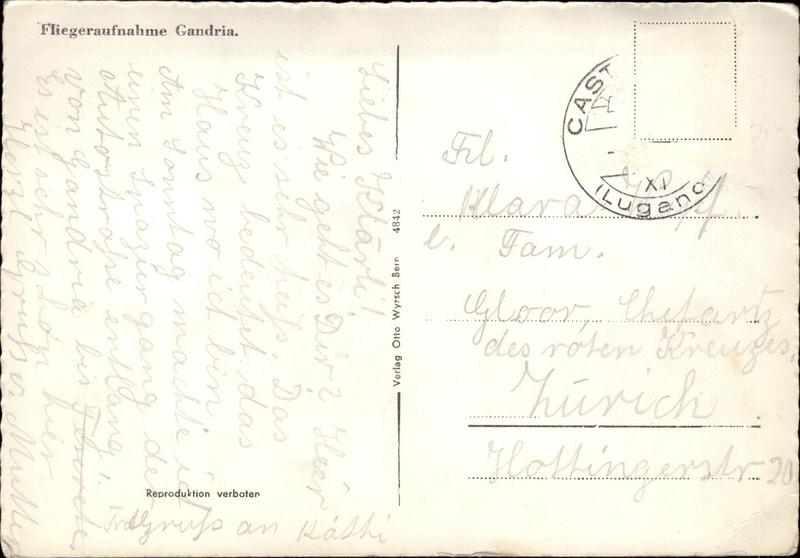 Fliegeraufnahme Gandria.
Liebes Klärli!
Wie geht es Dir? Hier
ist es sehr heiss. Das
Kreuz bedeutet das
Haus wo ich bin.
Am Sonntag machte ich
einen Spaziergang der
Autostrasse entlang
von Gandria bis
Es ist sehr schön hier
Herzl. Grüsse Mutter
Gruss an Käthi
Reproduktion verboten
Verlag Otto Wyrsch Bern 4842
CAST
XI
(Lugano)
Frl.
Klara
b. Fam.
Gloor, Chefarzt
des roten Kreuzes,
Zürich
Hottingerstr 20